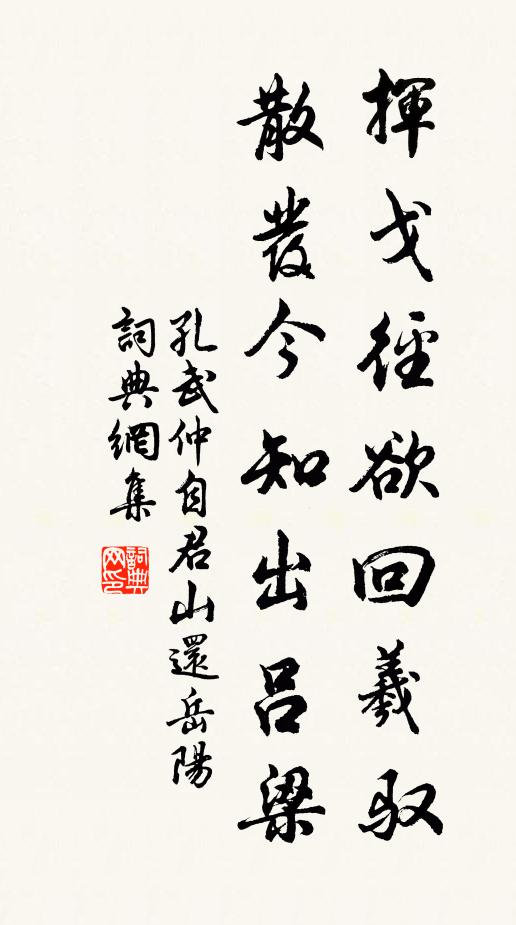 揮戈徑欲回羲馭
散發今知出呂梁
孔武仲自君山還岳陽
詞典網集
詞典网印